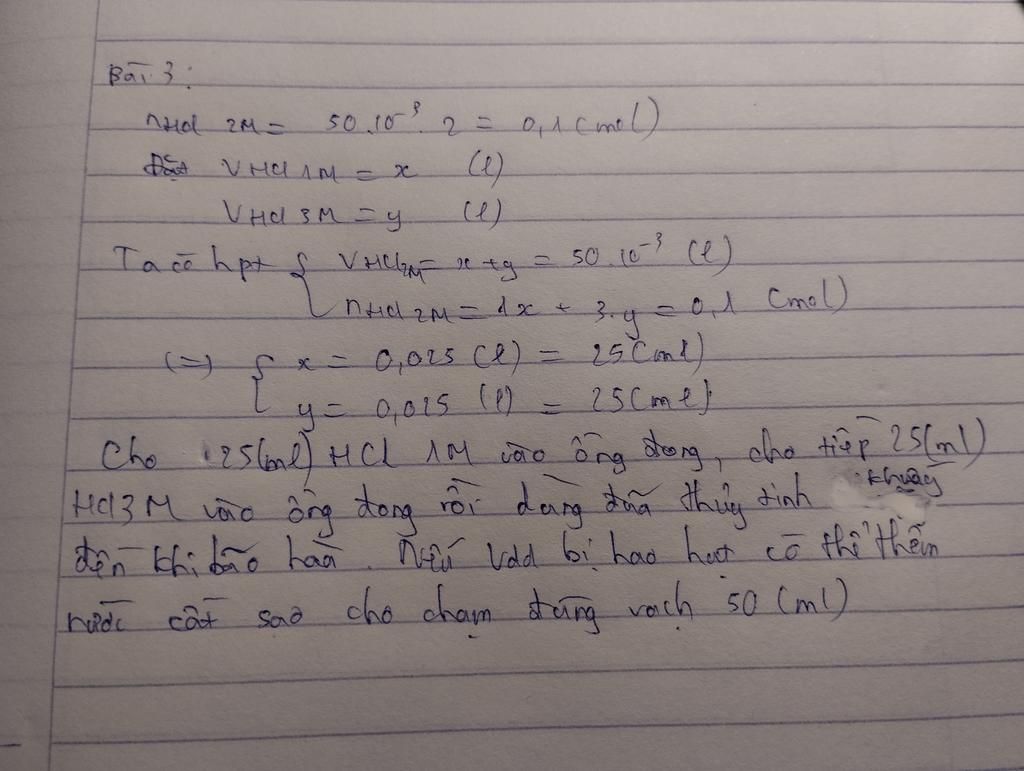 Bài 3:
nHCl 2M = 50.10⁻³. 2 = 0,1 (mol)
Đặt VHCl 1M = x (l)
VHCl 3M = y (l)
Ta có hpt { VHCl2M = x + y = 50.10⁻³ (l)
nHCl 2M = 1x + 3.y = 0,1 (mol)
(=) { x = 0,025 (l) = 25(ml)
y = 0,025 (l) = 25(ml)
Cho 25(ml) HCl 1M vào ống đong, cho tiếp 25(ml)
HCl3M vào ống đong rồi dùng đũa thủy tinh khuấy
đến khi bão hoà. Nếu Vdd bị hao hụt có thể thêm
nước cất sao cho chạm đúng vạch 50 (ml)